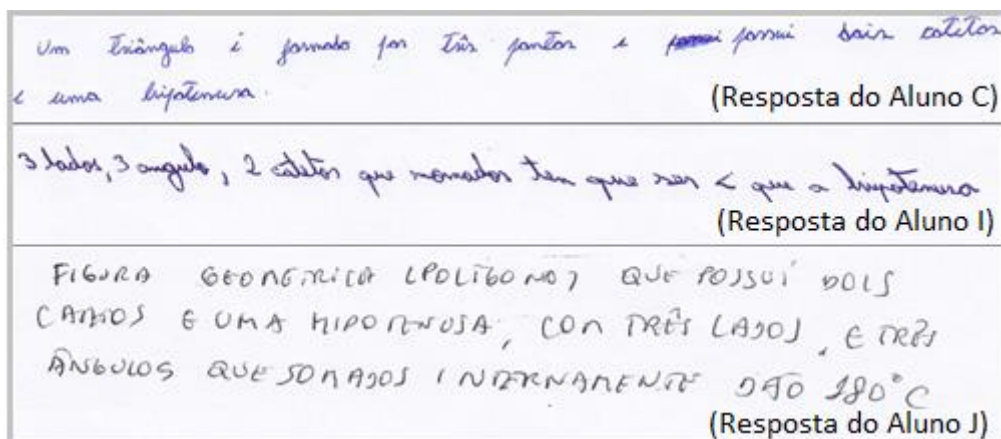 Um triângulo é formado por três pontos e possui dois catetos
e uma hipotenusa.
(Resposta do Aluno C)
3 lados, 3 angulo, 2 catetos que somados tem que ser < que a hipotenusa
(Resposta do Aluno I)
FIGURA GEOMETRICA (POLIGONO) QUE POSSUI DOIS
CATETOS E UMA HIPOTENUSA, COM TRÊS LADOS, E TRÊS
ÂNGULOS QUE SOMADOS INTERNAMENTE DÃO 180°C
(Resposta do Aluno J)